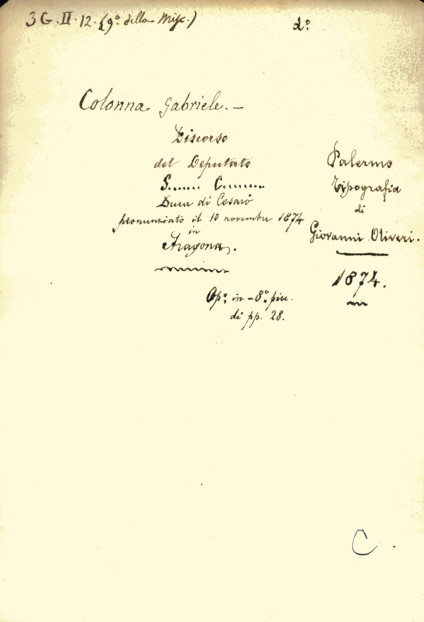 3 G. II. 12. (9º della Misc.)
dº
Colonna Gabriele. —
Discorso
del Deputato
G...... C.......
Duca di Cesarò
pronunziato il 10 novembre 1874
in
Aragona.
Palermo
Tipografia
di
Giovanni Oliveri.
1874.
Opº. in-8º. picc.
di pp. 28.
C.